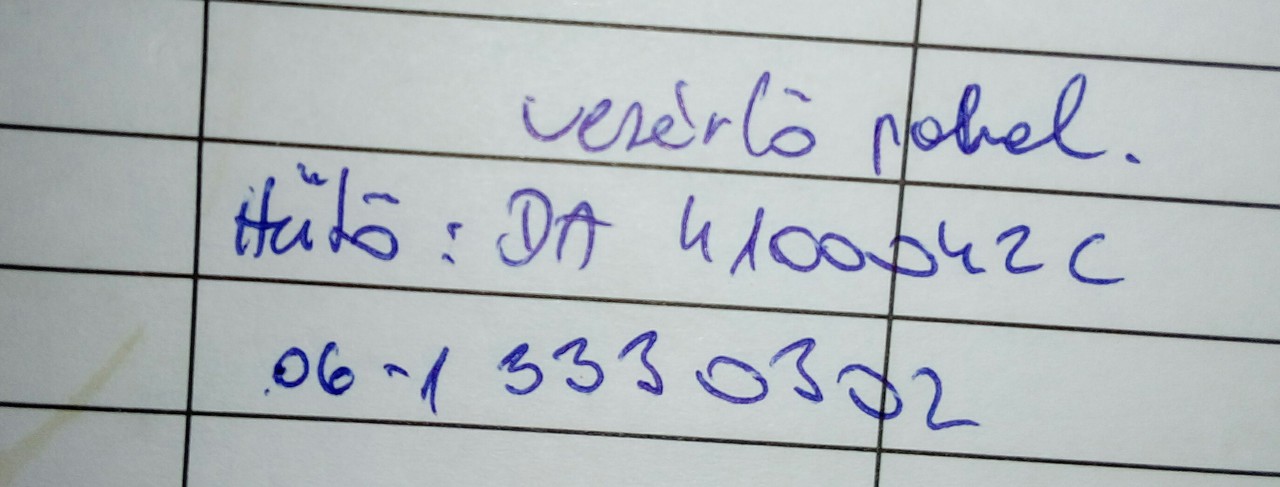 vezérlő pakel.
Hűtő: DA 4100042C
06-1 333 0302